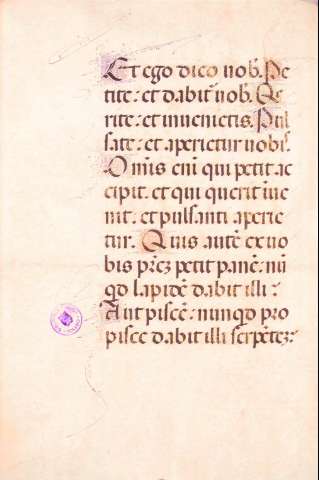 Et ego dico vob̄. Pe
tite: et dabit᷑ vob̄. Q̄e
rite: et invenietis. Pul
sate: et aperietur vobis.
Omis eni qui petit ac
cipit. et qui querit ive
nit. et pulsanti aperie
tur. Quis autē ex vo
bis prēz petit panē: nū
qd lapidē dabit illi?
Aut piscē: nunqd pro
pisce dabit illi serpētez?